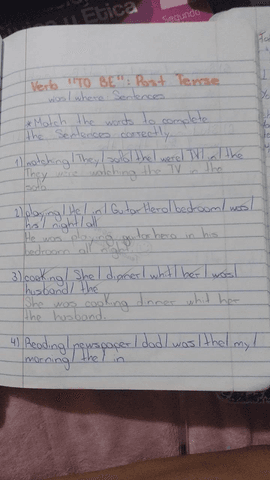 y Ética
Segundo
Verb "TO BE": Past Tense
was/where Sentences
*Match the words to complete
the Sentences correctly.
1) watching/They/sofa/the/were/TV/in/the
They were watching the TV in the
sofa.
2) playing/He/in/Guitar Hero/bedroom/was/
his/night/all.
He was playing guitar hero in his
bedroom all night
3) cooking/She/dinner/whit/her/was/
husband/the
She was cooking dinner whit her
the husband.
4) Reading/newspaper/dad/was/the/my/
morning/the/in